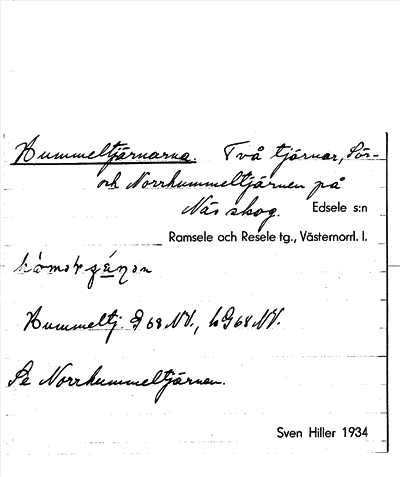 Hummeltjärnarna. Två tjärnar, Sör-
och Norrhummeltjärnen på
Näs skog. Edsele s:n
Ramsele och Resele tg., Västernorrl. l.
Hummeltj. G 68 NV., hG 68 NV.
Se Norrhummeltjärnen.
Sven Hiller 1934